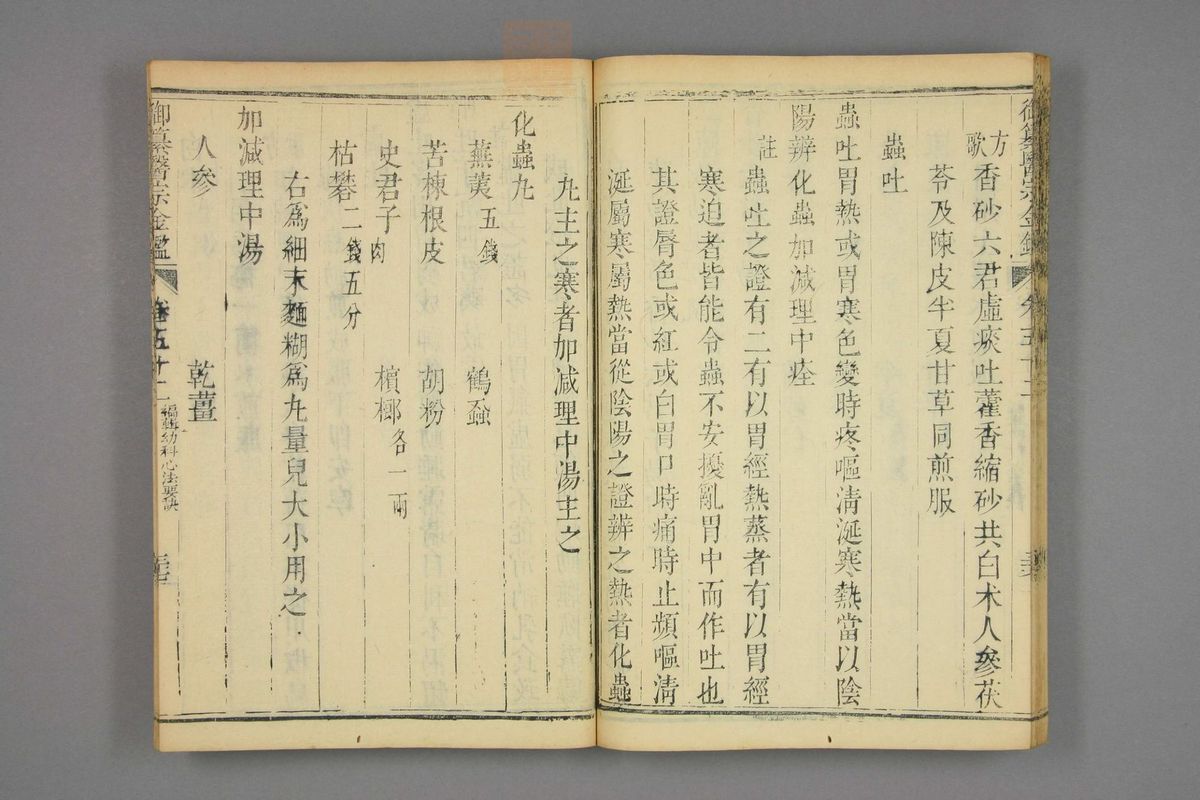 御纂醫宗金鑑 卷五十二
方歌 香砂六君虛痰吐藿香縮砂共白术人參茯
苓及陳皮半夏甘草同煎服
蟲吐
蟲吐胃熱或胃寒色變時疼嘔清涎寒熱當以陰
陽辨化蟲加減理中痊
註 蟲吐之證有二有以胃經熱蒸者有以胃經
寒迫者皆能令蟲不安擾亂胃中而作吐也
其證唇色或紅或白胃口時痛時止頻嘔清
涎屬寒屬熱當從陰陽之證辨之熱者化蟲
丸主之寒者加減理中湯主之
化蟲丸
蕪荑五錢 鶴蝨
苦楝根皮 胡粉
史君子肉 檳榔各一兩
枯礬二錢五分
右爲細末麵糊爲丸量兒大小用之
加減理中湯
人參 乾薑
御纂醫宗金鑑 卷五十二 編輯幼科心法要訣